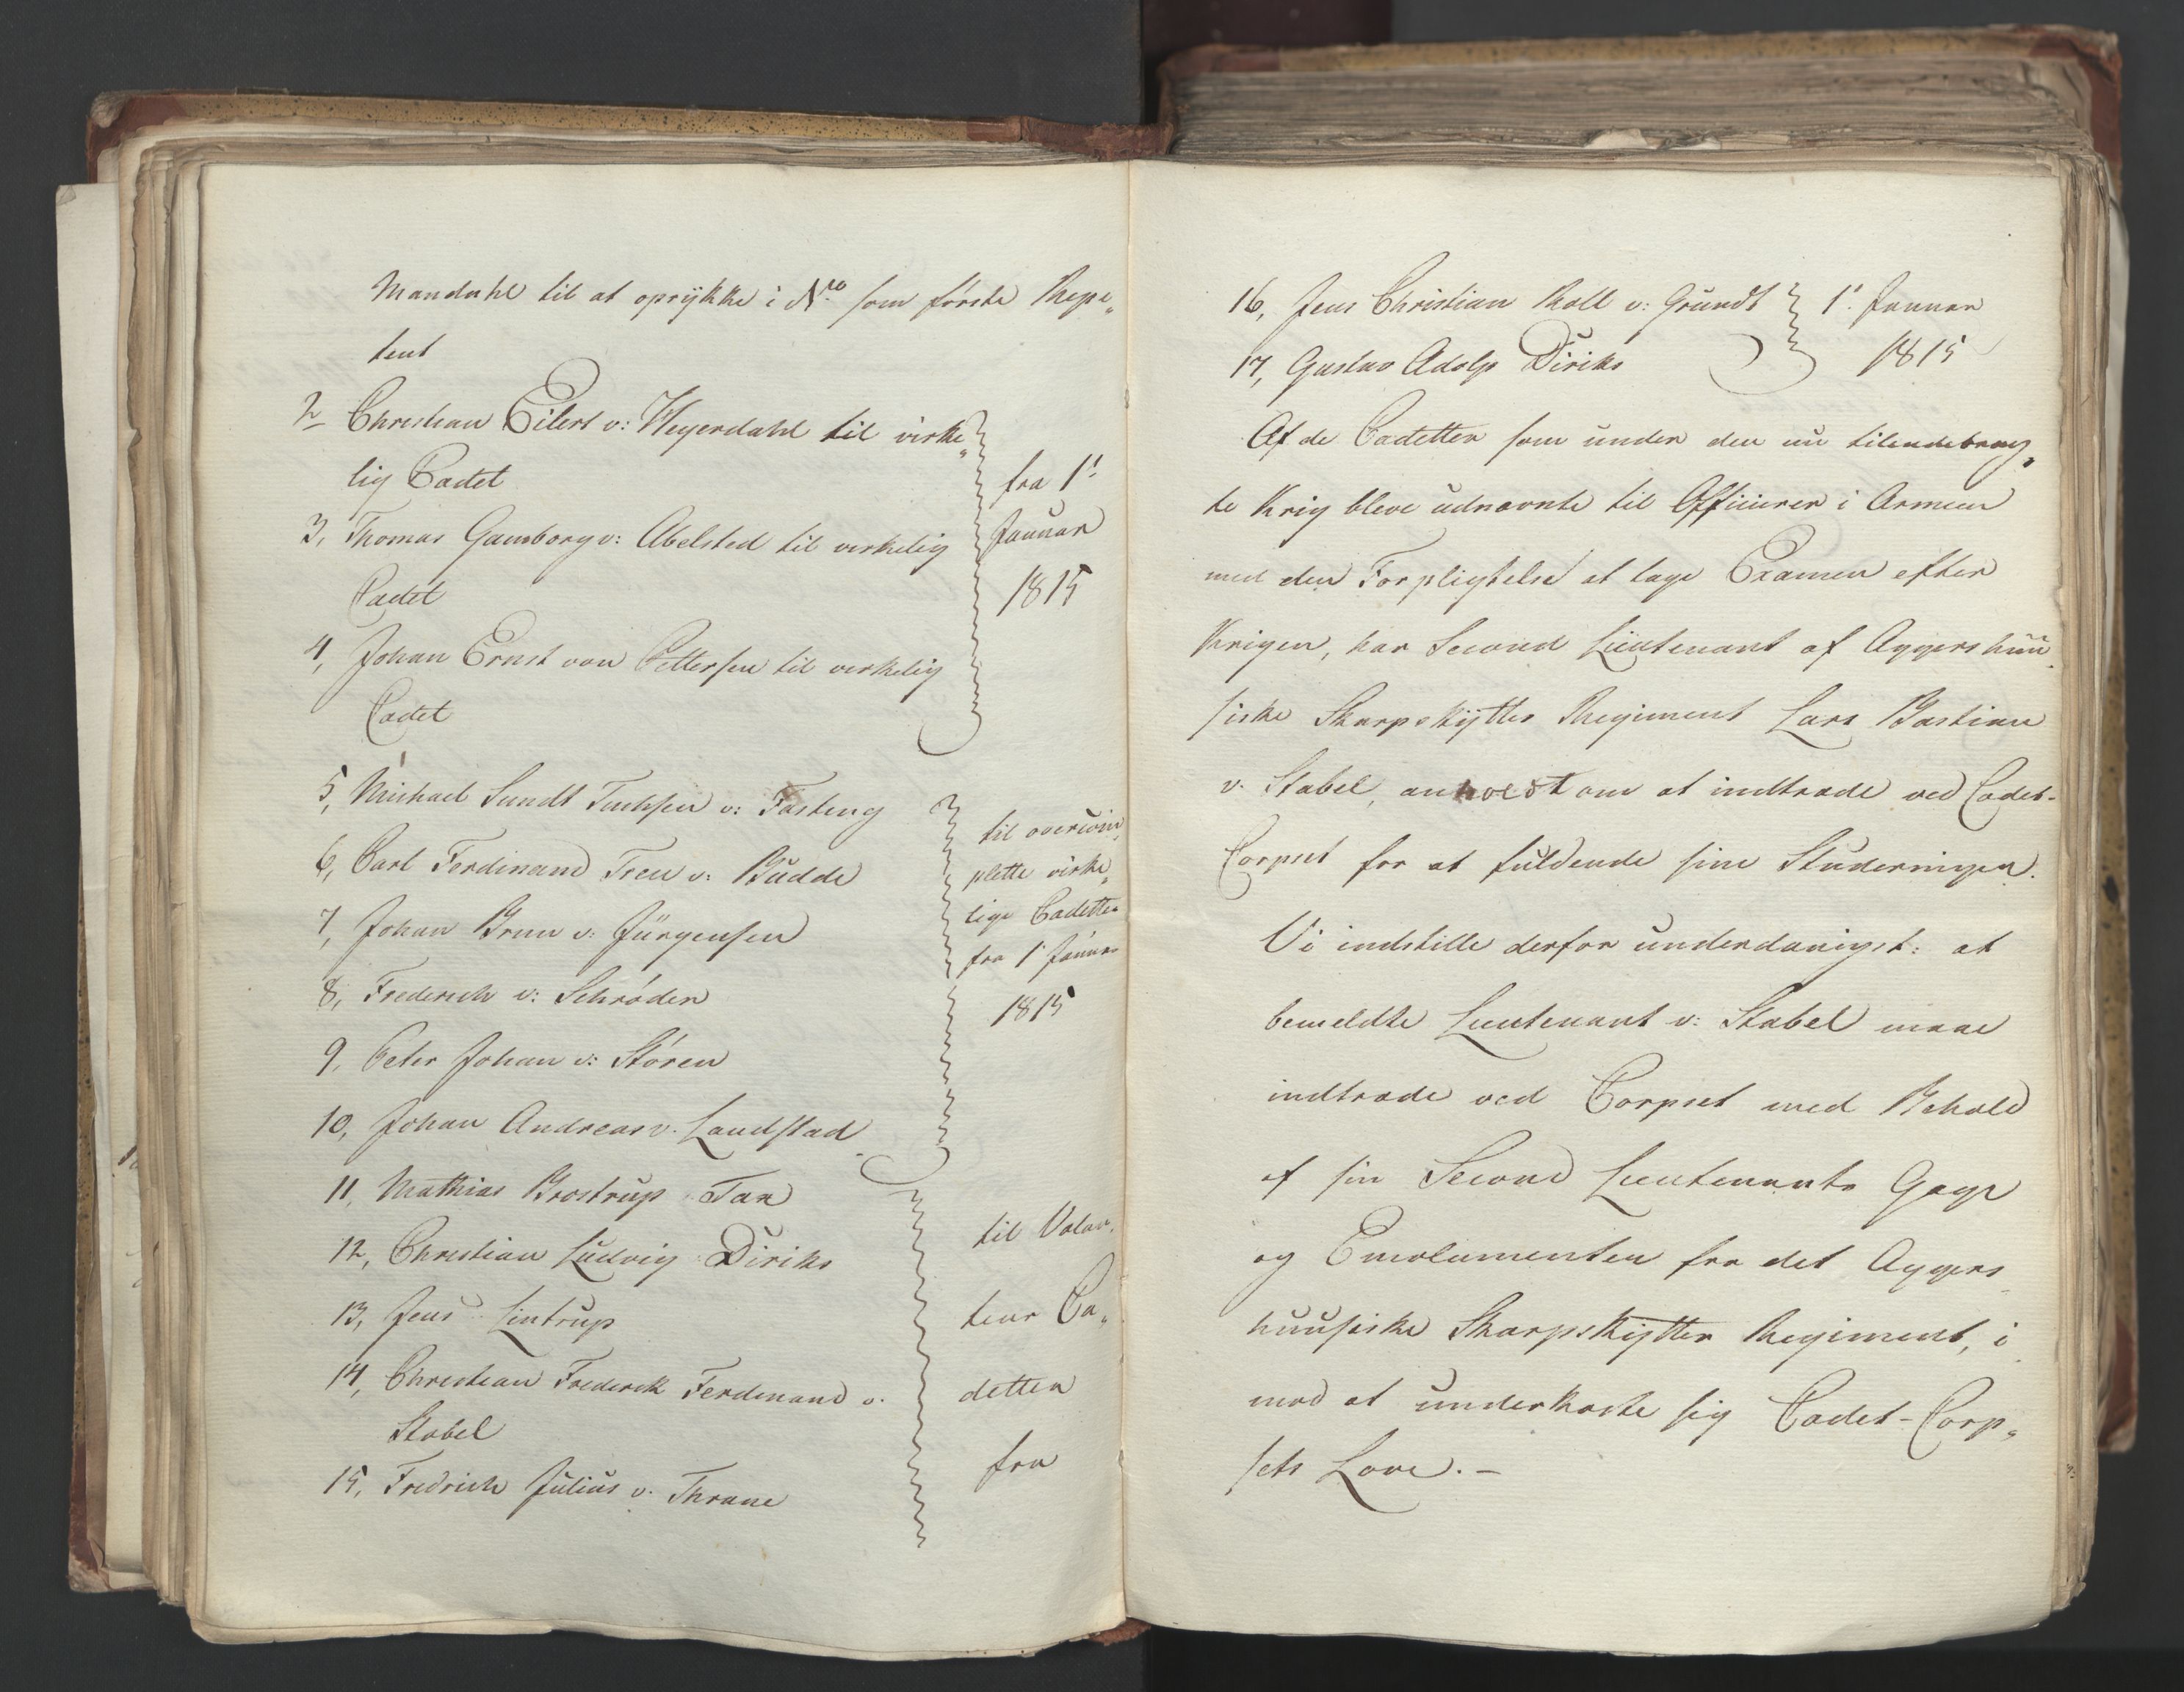 Mandahl til at oprykke i No som første Repe„
tent
2 Christian Eilert v: Heyerdahl til virke„
lig Cadet
3, Thomas Gamborg v: Abelsted til verkelig
Cadet
4, Johan Ernst von Pettersen til verkelig
Cadet
fra 1t
Januar
1815
5, Michael Sundt Tuchsen v: Fasting
6, Carl Ferdinand Treu v: Budde
7, Johan Brun v: Jürgensen
8, Frederich v: Schrøder
9, Peter Johan v: Støren
10, Johan Andreas v. Landstad
til overcom„
plette virke„
lige Cadetter
fra 1 Januar
1815
11, Mathias Brostrup Tax
12, Christian Ludvig Diriks
13, Jens Lintrup
14, Christian Frederik Ferdinand v.
Stabel
15, Fredrich Julius v. Thrane
til Volon„
teur Ca„
detter
fra
16, Jens Christian Roll v: Grundt
17, Gustav Adolp Diriks
1t Januar
1815
Af de Cadetter som under den nu tilendebrag„
te Krig bleve udnævnte til Officierer i Armeen
med den Forpligtelse at tage Examen efter
Krigen, har Second Lieutenant af Aggershuu„
siske Skarpskytter Regiment Lars Bastian
v. Stabel, anholdt om at indtræde ved Cadet-
Corpset for at fuldende sine Studeringer.
Vi indstille derfor underdanigst: at
bemeldte Lieutenant v: Stabel maae
indtræde ved Corpset med Behold
af sin Second Lieutenants Gage
og Emolumenter fra det Aggers
huusiske Skarpskytter Regiment, i
mod at underkaste sig Cadet-Corp„
sets Love. –